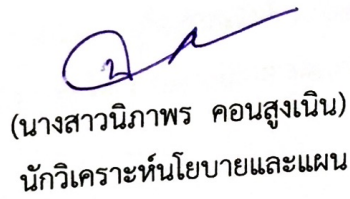 (นางสาวนิภาพร คอนสูงเนิน)
นักวิเคราะห์นโยบายและแผน